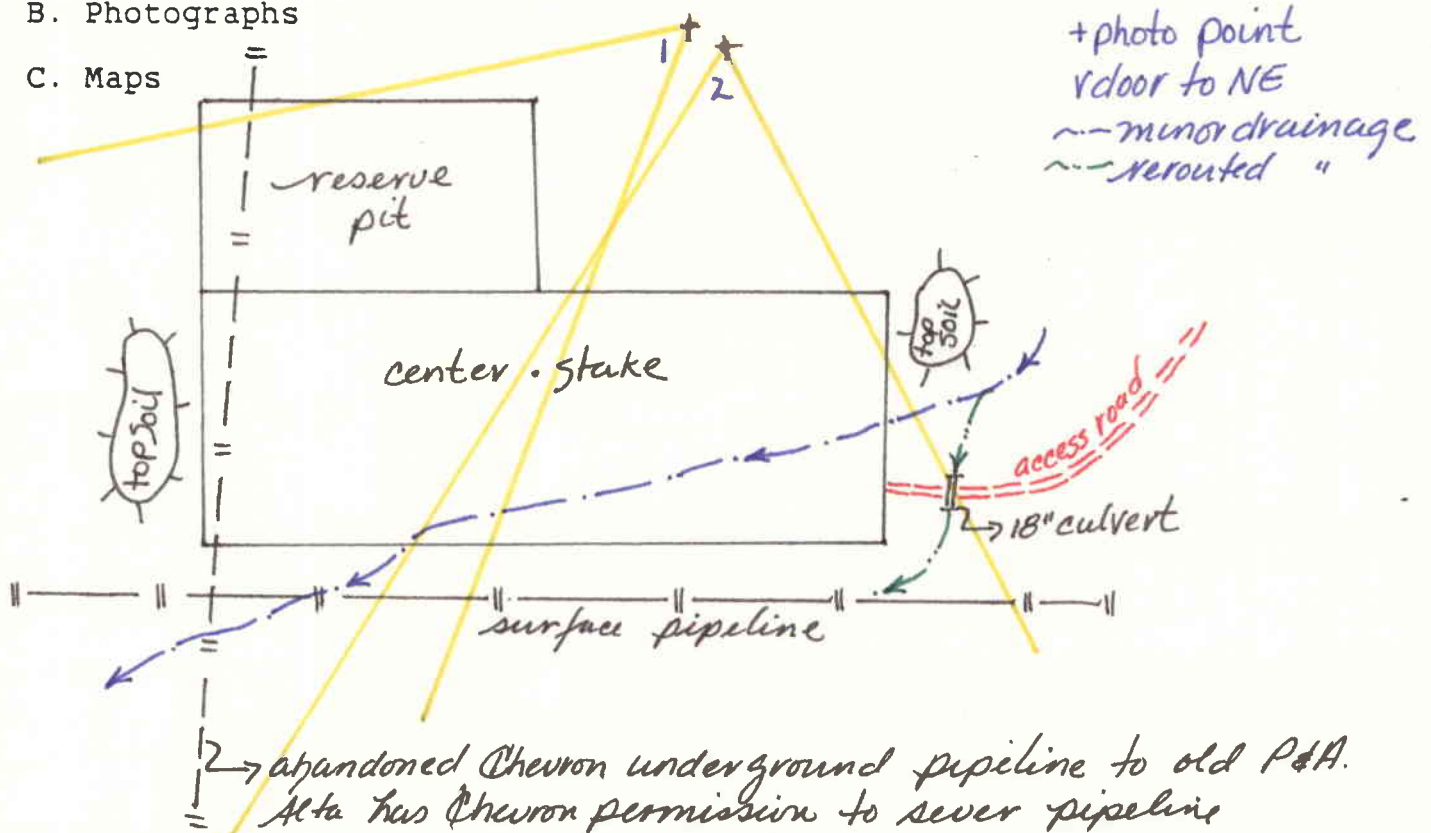 B. Photographs
C. Maps
1
2
+ photo point
Vdoor to NE
minor drainage
rerouted "
reserve
pit
top
soil
center . stake
topsoil
access road
18" culvert
surface pipeline
abandoned Chevron underground pipeline to old P&A.
Alta has Chevron permission to sever pipeline